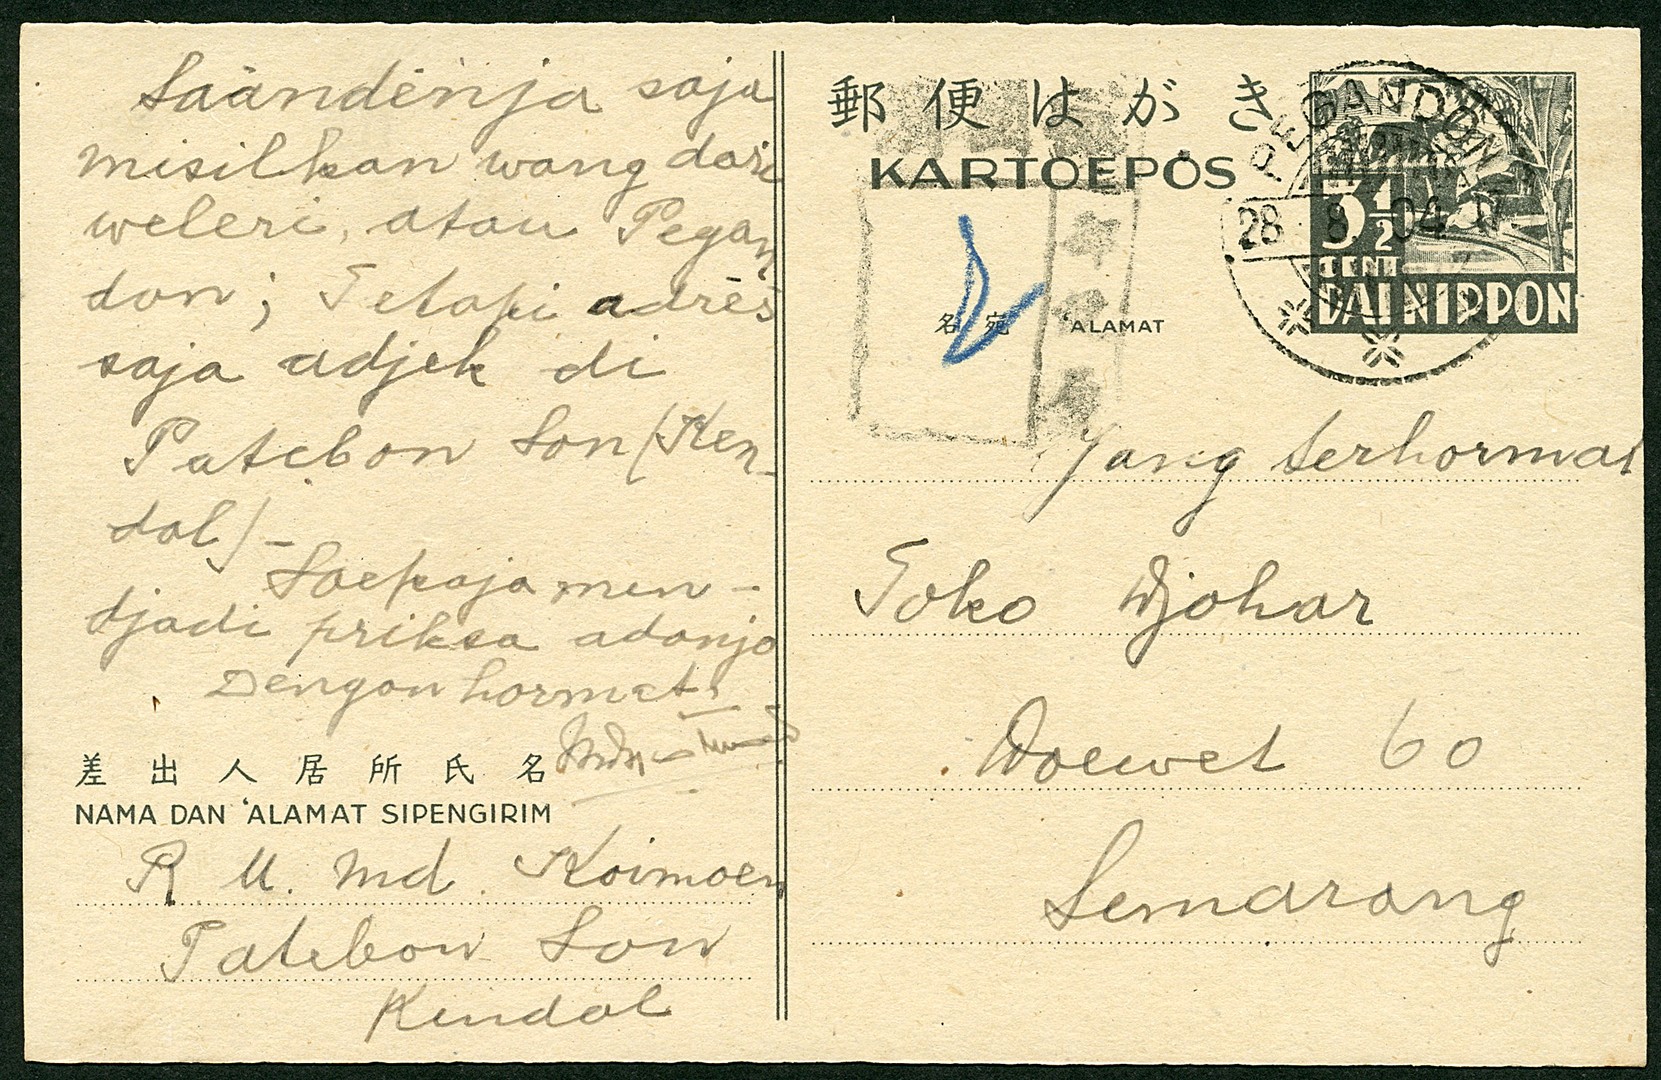 Saändénja saja
misilkan wang dari
weleri, atau Pegan
don; Tetapi adrés
saja adjek di
Patebon Son (Ken-
dal) -
Soepaja men-
djadi priksa adanja
Dengan hormat
差出人居所氏名
NAMA DAN 'ALAMAT SIPENGIRIM
R M. Md. Koimoen
Patebon Son
Kendal
郵便はがき
KARTOEPOS
PEGANDON
28 8 04
3½
CENT
DAI NIPPON
名宛 'ALAMAT
Jang terhormat
Toko Djohar
Doewet 60
Semarang